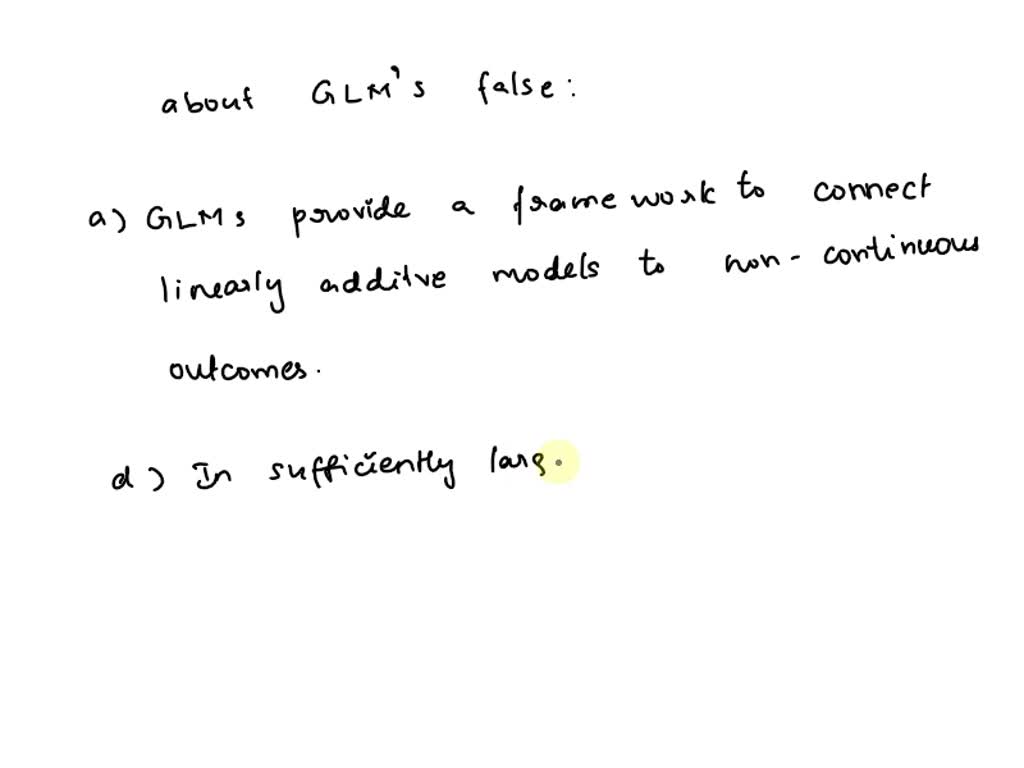 about GLM's false:
a) GLMs provide a frame work to connect
linearly additve models to non-continuous
outcomes.
d) In sufficiently larg